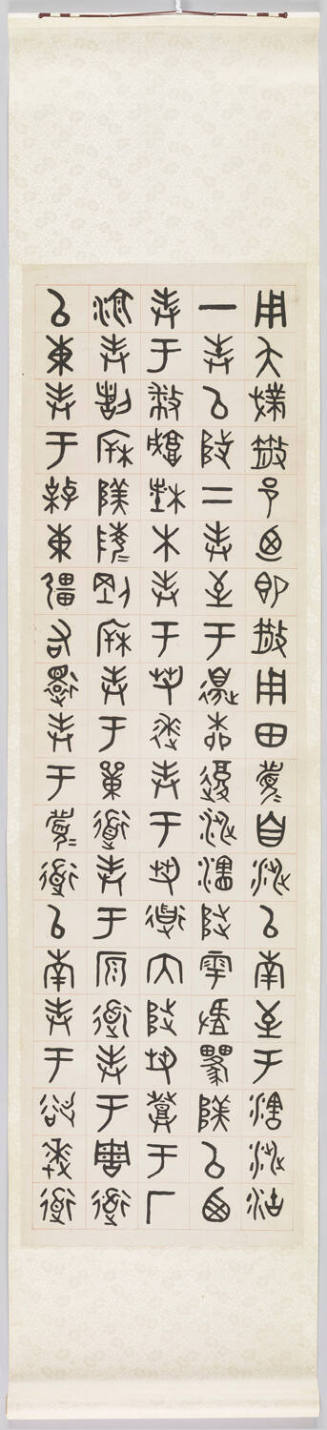 用夨撲散邑迺即散用田眉自涉以南至于涉沽
一封以陟二封至于邊柳復涉瀗陟雩以西
封于播城楮木封于芻逨封于芻道内陟芻登于厂
湶封諸㭫陵剛㭫封于單道封于原道封于周道
以東封于棹東疆右還封于眉道以南封于逨道